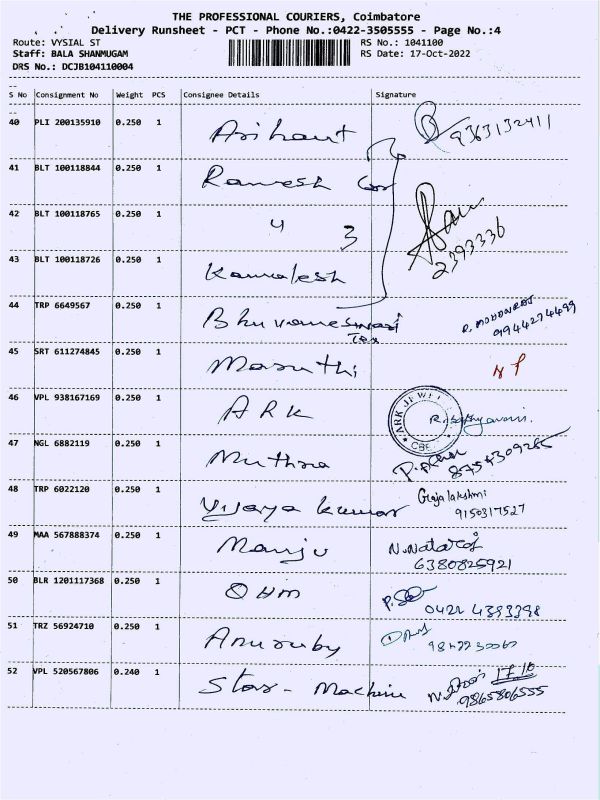 THE PROFESSIONAL COURIERS, Coimbatore
Delivery Runsheet - PCT - Phone No.:0422-3505555 - Page No.:4
Route: VYSIAL ST RS No.: 1041100
Staff: BALA SHANMUGAM RS Date: 17-Oct-2022
DRS No.: DCJB104110004
S No Consignment No Weight PCS Consignee Details Signature
40 PLI 200135910 0.250 1 Arihant 9363132411
41 BLT 100118844 0.250 1 Ramesh
42 BLT 100118765 0.250 1 4 3 2393336
43 BLT 100118726 0.250 1 Kamalesh
44 TRP 6649567 0.250 1 Bhuvaneswari Tex 9944274499
45 SRT 611274845 0.250 1 Maruthi
46 VPL 938167169 0.250 1 ARK ARK JEWEL CBE
47 NGL 6882119 0.250 1 Muthra
48 TRP 6022120 0.250 1 Vijaya kumar Gajalakshmi
9150317527
49 MAA 567888374 0.250 1 Manju N.Nataraj
6380825921
50 BLR 1201117368 0.250 1 OHM 0422 4393398
51 TRZ 56924710 0.250 1 Anuruby
52 VPL 520567806 0.240 1 Star - Machine 17/10
9865806555